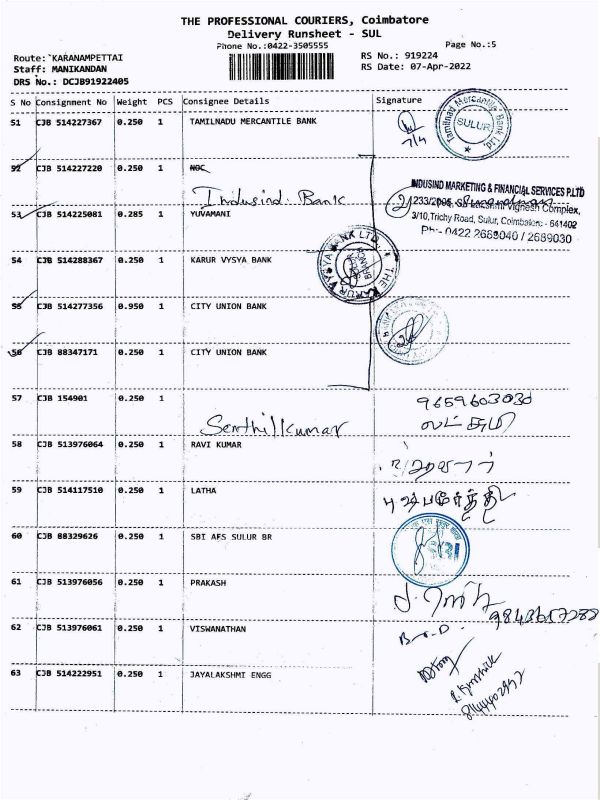 THE PROFESSIONAL COURIERS, Coimbatore
Delivery Runsheet - SUL
Phone No.:0422-3505555
Page No.:5
Route:`KARANAMPETTAI
RS No.: 919224
Staff: MANIKANDAN
RS Date: 07-Apr-2022
DRS No.: DCJB91922405
S No Consignment No Weight PCS Consignee Details Signature
51 CJB 514227367 0.250 1 TAMILNADU MERCANTILE BANK
7/4
Tamilnad Mercantile Bank Ltd.
SULUR
52 CJB 514227220 0.250 1 NOC
Indusind. Bank
INDUSIND MARKETING & FINANCIAL SERVICES P.LTD
233/2005, Sri Lakshmi Vignesh Complex,
3/10,Trichy Road, Sulur, Coimbatore - 641402
Ph:- 0422 2689040 / 2689030
53 CJB 514225081 0.285 1 YUVAMANI
54 CJB 514288367 0.250 1 KARUR VYSYA BANK
THE KARUR VYSYA BANK LTD.
BRANCH
55 CJB 514277356 0.950 1 CITY UNION BANK
56 CJB 88347171 0.250 1 CITY UNION BANK
57 CJB 154901 0.250 1
Senthilkumar
9659603030
லட்சுமி
58 CJB 513976064 0.250 1 RAVI KUMAR
59 CJB 514117510 0.250 1 LATHA
60 CJB 88329626 0.250 1 SBI AFS SULUR BR
SBI
61 CJB 513976056 0.250 1 PRAKASH
62 CJB 513976061 0.250 1 VISWANATHAN
63 CJB 514222951 0.250 1 JAYALAKSHMI ENGG